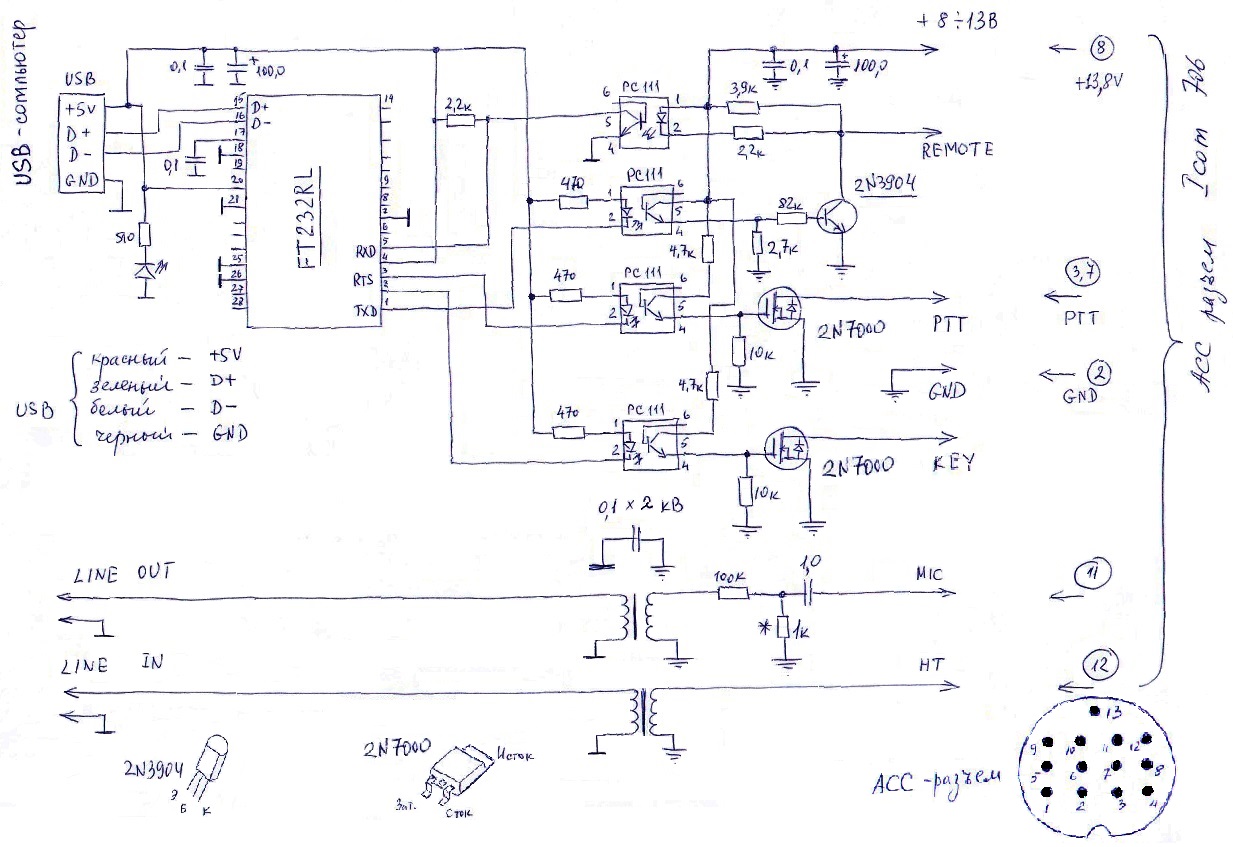 USB-сомпьютер
USB
+5V
D+
D-
GND
0,1
+
100,0
0,1
510
15
16
17
18
19
20
21
25
26
27
28
D+
D-
FT232RL
RXD
RTS
TXD
14
9
8
7
6
5
4
3
2
1
2,2к
470
470
470
PC111
6
5
4
1
2
PC111
1
2
6
5
4
PC111
1
2
6
5
4
PC111
1
2
6
5
4
+ 8÷13В
0,1
+
100,0
3,9к
2,2к
REMOTE
2N3904
82к
2,7к
4,7к
2N7000
PTT
10к
GND
4,7к
2N7000
KEY
10к
8
+13,8V
3,7
PTT
2
GND
11
12
АСС разъем Icom 706
USB
красный — +5V
зеленый — D+
белый — D-
черный — GND
0,1 × 2 кВ
LINE OUT
100к
1,0
MIC
* 1к
LINE IN
НТ
2N3904
Э
Б
К
2N7000
Исток
Зат.
Сток
АСС-разъем
13
9 10 11 12
5 6 7 8
1 2 3 4